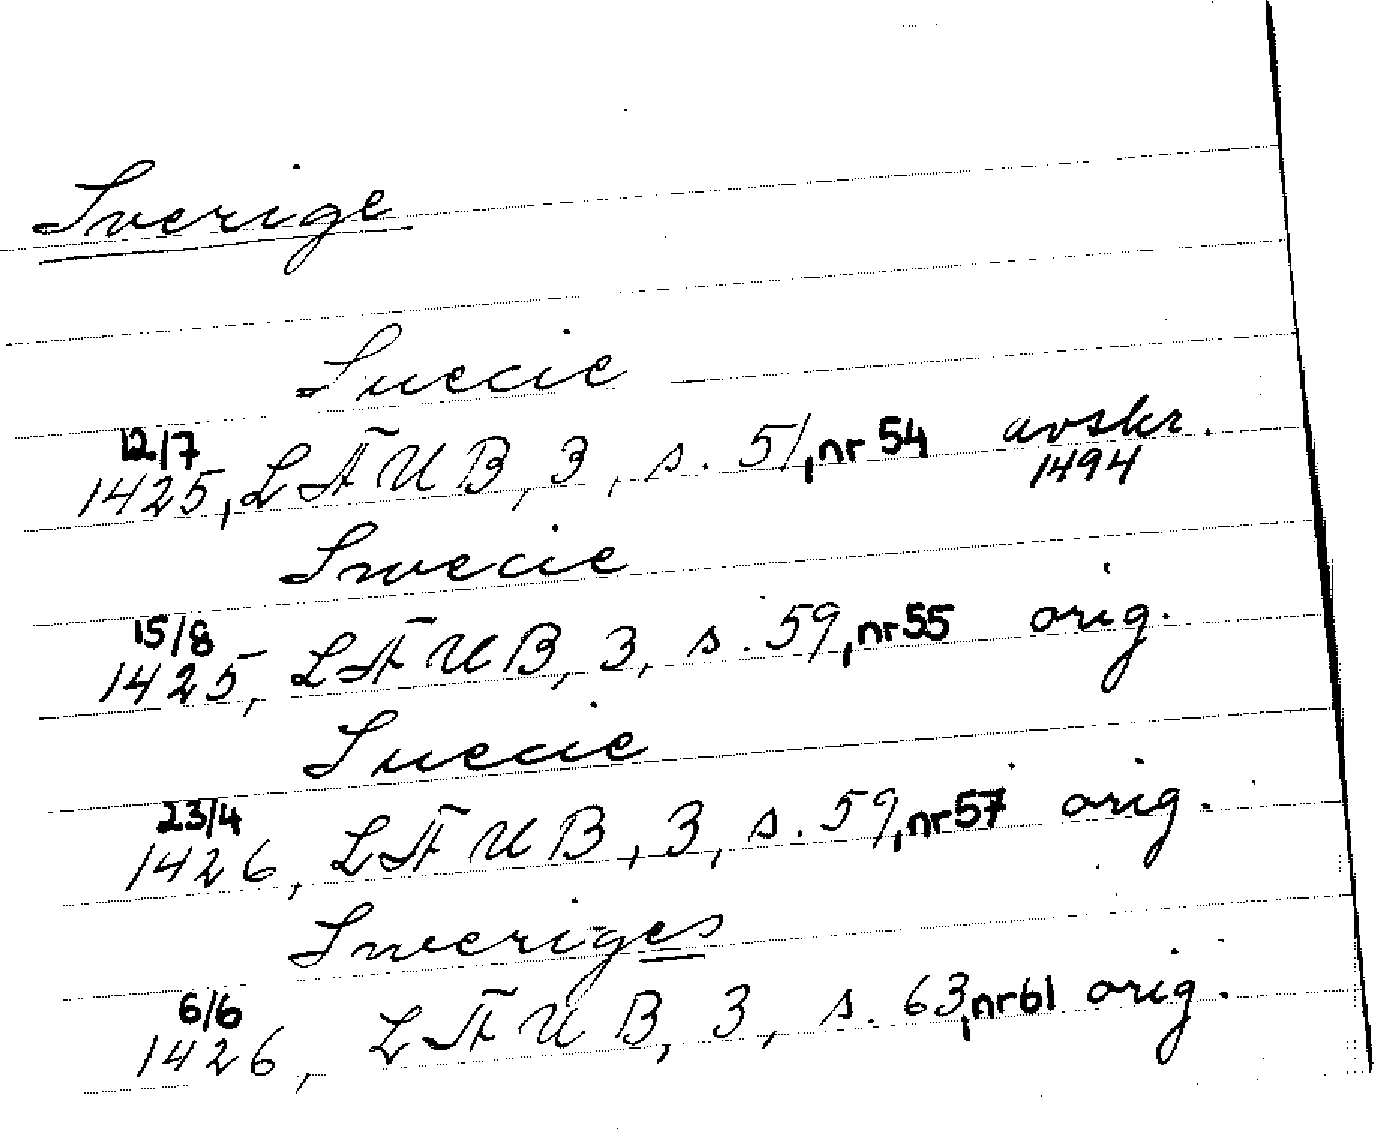 Sverige
Suecie
12/7
1425, LFUB, 3, s. 51, nr 54 avskr.
1494
Swecie
15/8
1425, LFUB, 3, s. 59, nr 55 orig.
Suecie
23/4
1426, LFUB, 3, s. 59, nr 57 orig.
Sweriges
6/6
1426, LFUB, 3, s. 63, nr 61 orig.